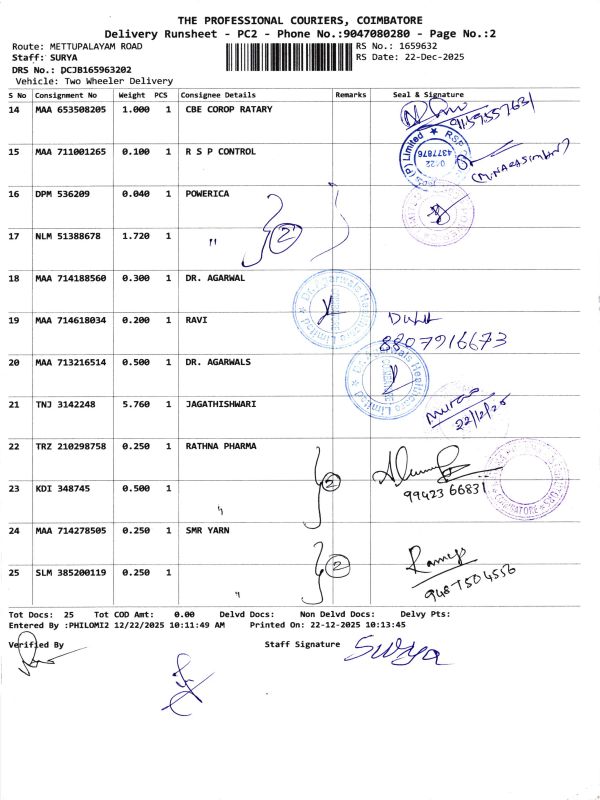 THE PROFESSIONAL COURIERS, COIMBATORE
Delivery Runsheet - PC2 - Phone No.:9047080280 - Page No.:2
Route: METTUPALAYAM ROAD RS No.: 1659632
Staff: SURYA RS Date: 22-Dec-2025
DRS No.: DCJB165963202
Vehicle: Two Wheeler Delivery
S No Consignment No Weight PCS Consignee Details Remarks Seal & Signature
14 MAA 653508205 1.000 1 CBE COROP RATARY 9159557631
15 MAA 711001265 0.100 1 R S P CONTROL (P) Limited ★ RSP 0422 4377876
16 DPM 536209 0.040 1 POWERICA
17 NLM 51388678 1.720 1 " 2
18 MAA 714188560 0.300 1 DR. AGARWAL Dr. Agarwals Healthcare Limited ★
19 MAA 714618034 0.200 1 RAVI 8807916673
20 MAA 713216514 0.500 1 DR. AGARWALS Dr. Agarwals Healthcare Limited ★
21 TNJ 3142248 5.760 1 JAGATHISHWARI 22/12/25
22 TRZ 210298758 0.250 1 RATHNA PHARMA 2 99423 66831 COIMBATORE
23 KDI 348745 0.500 1 "
24 MAA 714278505 0.250 1 SMR YARN 2 Ramesh
25 SLM 385200119 0.250 1 " 9487504556
Tot Docs: 25 Tot COD Amt: 0.00 Delvd Docs: Non Delvd Docs: Delvy Pts:
Entered By :PHILOMI2 12/22/2025 10:11:49 AM Printed On: 22-12-2025 10:13:45
Verified By Staff Signature Surya